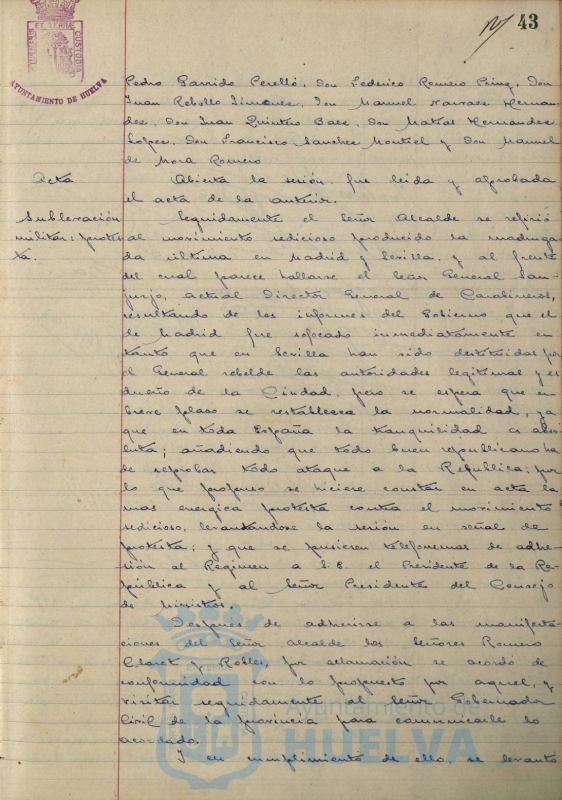 43
PORTUS MARIS ET TERRAE CUSTODIA
AYUNTAMIENTO DE HUELVA
Pedro Garrido Perelló, don Federico Romero Prinz, Don
Juan Rebollo Jimenez, Don Manuel Narvaez Hernan-
dez, Don Juan Quintero Baez, don Matias Hernandez
Lopez, don Francisco Sanchez Montiel y Don Manuel
de Mora Romero
Acta
Abierta la sesión, fue leida y aprobada
el acta de la anterior.
Sublevación
militar: protes-
ta.
Seguidamente el Señor Alcalde se refirió
al movimiento sedicioso producido la madruga-
da última en Madrid y Sevilla, y al frente
del cual parece hallarse el Señor General San-
jurjo, actual Director General de Carabineros,
resultando de los informes del Gobierno que el
de Madrid fue sofocado inmediatamente en
tanto que en Sevilla han sido destituidas por
el General rebelde las autoridades legitimas y es
dueño de la Ciudad, pero se espera que en
breve plazo se restablezca la normalidad, ya
que en toda España la tranquilidad es abso-
luta; añadiendo que todo buen republicano ha
de reprobar todo ataque a la Republica; por
lo que propuso se hiciere constar en acta la
mas energica protesta contra el movimiento
sedicioso, levantandose la sesión en señal de
protesta; y que se pusiesen telefonemas de adhe-
sión al Regimen a S.E. el Presidente de la Re-
pública y al Señor Presidente del Consejo
de Ministros.
Despues de adherirse a las manifesta-
ciones del Señor alcalde los señores Romero
Claret y Robles, por aclamación se acordó de
conformidad con lo propuesto por aquel, y
visitar seguidamente al Señor Gobernador
Civil de la provincia para comunicarle lo
acordado.
Y en cumplimiento de ello, se levanto
Ayuntamiento de
HUELVA